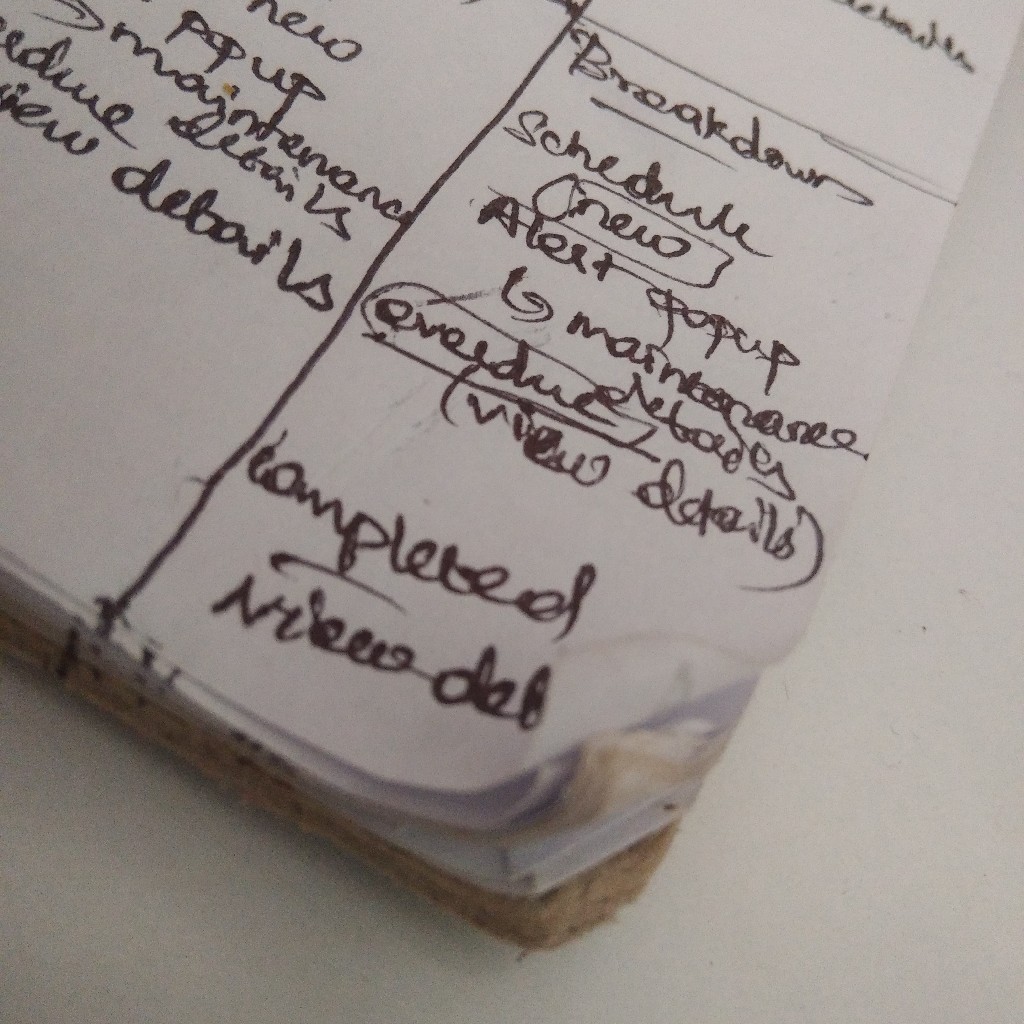 new
popup
maintenanc
details
edue
view details
details
Breakdown
Schedule
(new)
Alert popup
↳ maintenance
details
overdue
(view details)
Completed
view det